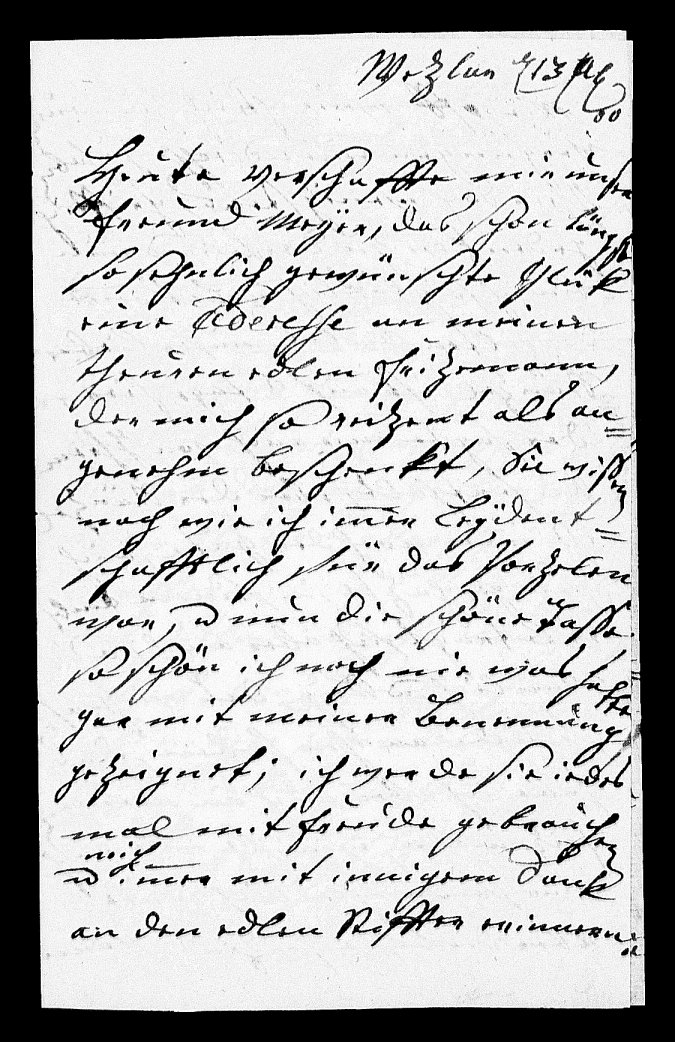 Wetzlar d 13 
00
Heute verschaffte mir unser
Freund Meyer, das schon längst
so sehnlich gewünschte Glük
eine Aderesse an meinen
theuren edlen Heizemann,
der mich so reitzent als an=
genehm beschenkt, Sie wissen
noch wie ich immer Leydent=
schafftlich für das Porzelen
war, u nun die schöne Tasse
so schön ich noch nie was hatte
gar mit meiner Benennung
gezeignet; ich werde sie iedes
mal mit Freude gebrauchen
mich
u immer mit innigem Dank
an den edlen Stiffter erinnern